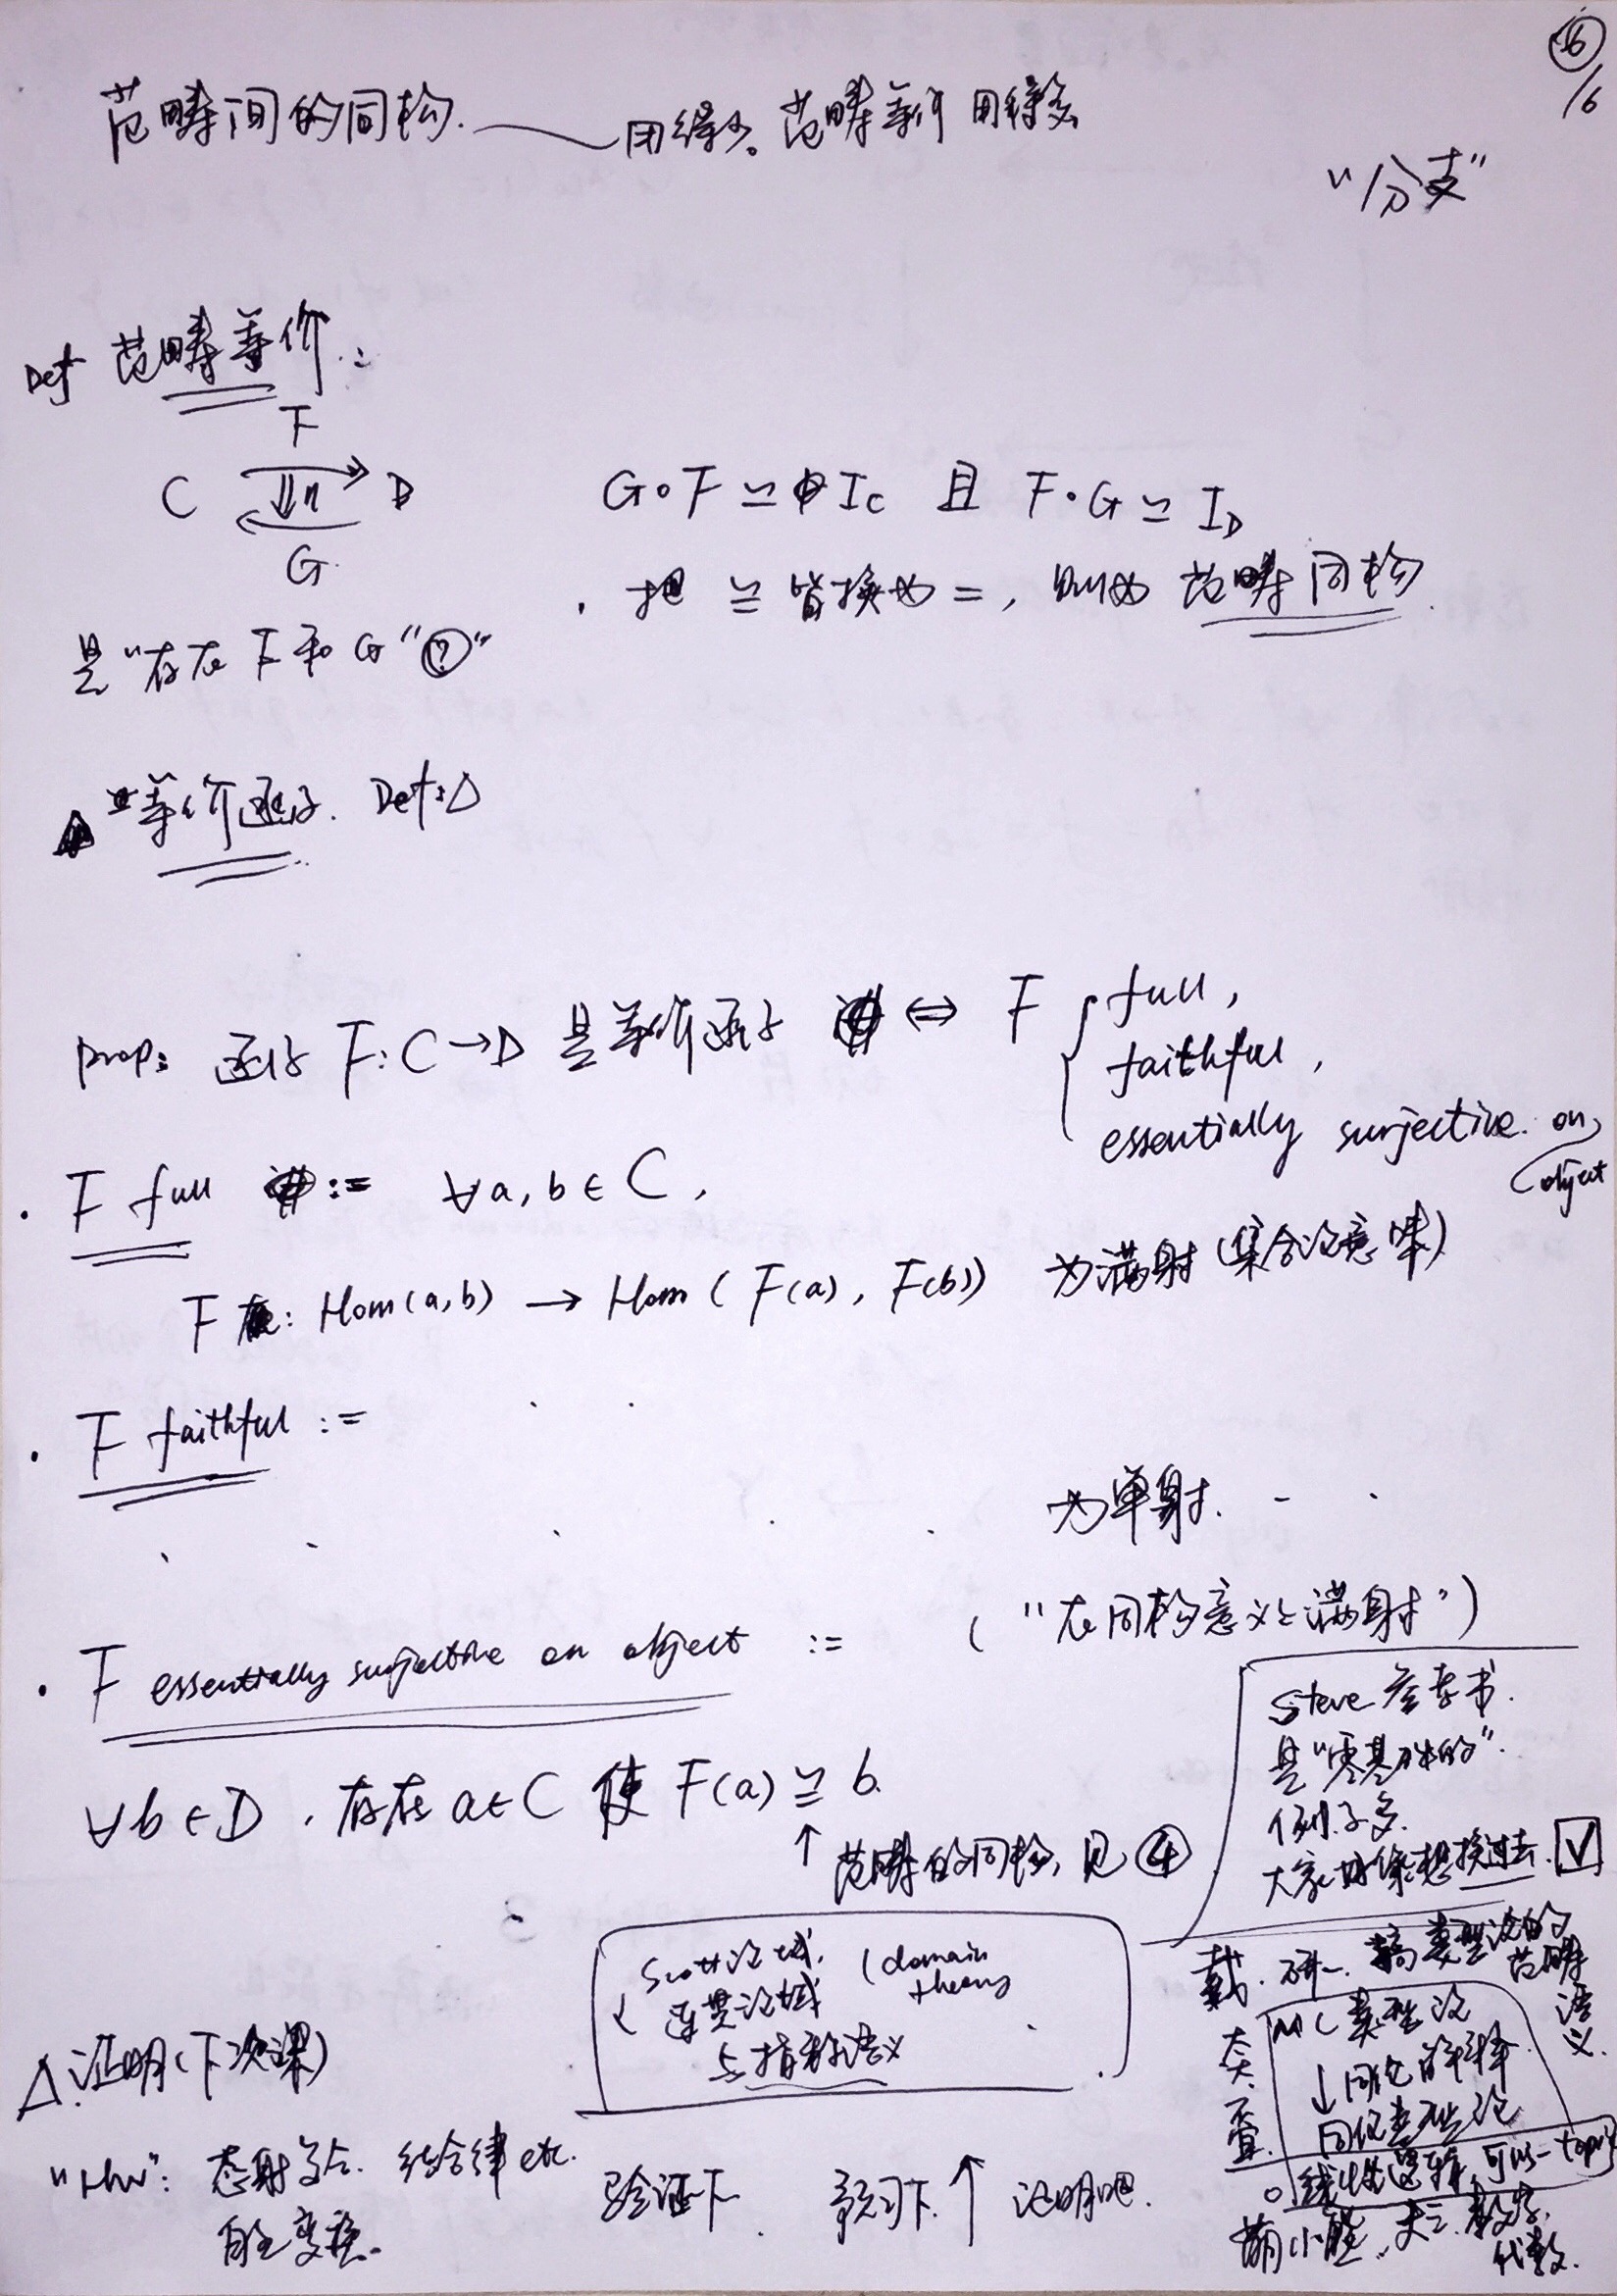 ⑥/6
范畴间的同构. 用得少。范畴等价用得多
"分支"
Def 范畴等价:
F
C ⇓η D
G
G∘F ≃ I_C 且 F∘G ≃ I_D
. 把 ≃ 皆换为 =, 则为 范畴同构.
是"存在 F 和 G"?
等价函子. Def: Δ
prop: 函子 F: C→D 是等价函子 ⇔ F { full,
faithful,
essentially surjective. on object
· F full := ∀a, b ∈ C,
F : Hom(a,b) → Hom(F(a), F(b)) 为满射 (集合论意味)
· F faithful :=
为单射.
· F essentially surjective on object := ("在同构意义上满射")
∀b∈D, 存在 a∈C 使 F(a) ≅ b.
↑ 范畴的同构, 见 ④
Steve 参考书.
是"零基础的".
例子多.
大家好像想换过去. ☑
Scott论域,
连贯论域 (domain theory
与指称语义 )
戴. 研一. 搞类型论的范畴语义.
ML 类型论
↓同伦解释
同伦类型论
线性逻辑, 可以一topic
萌小熊, 大三. 数学, 代数.
Δ. 证明 (下次课)
"Hw": 态射复合. 结合律 etc. 验证下. 预习下 ↑ 证明吧.
自然变换.